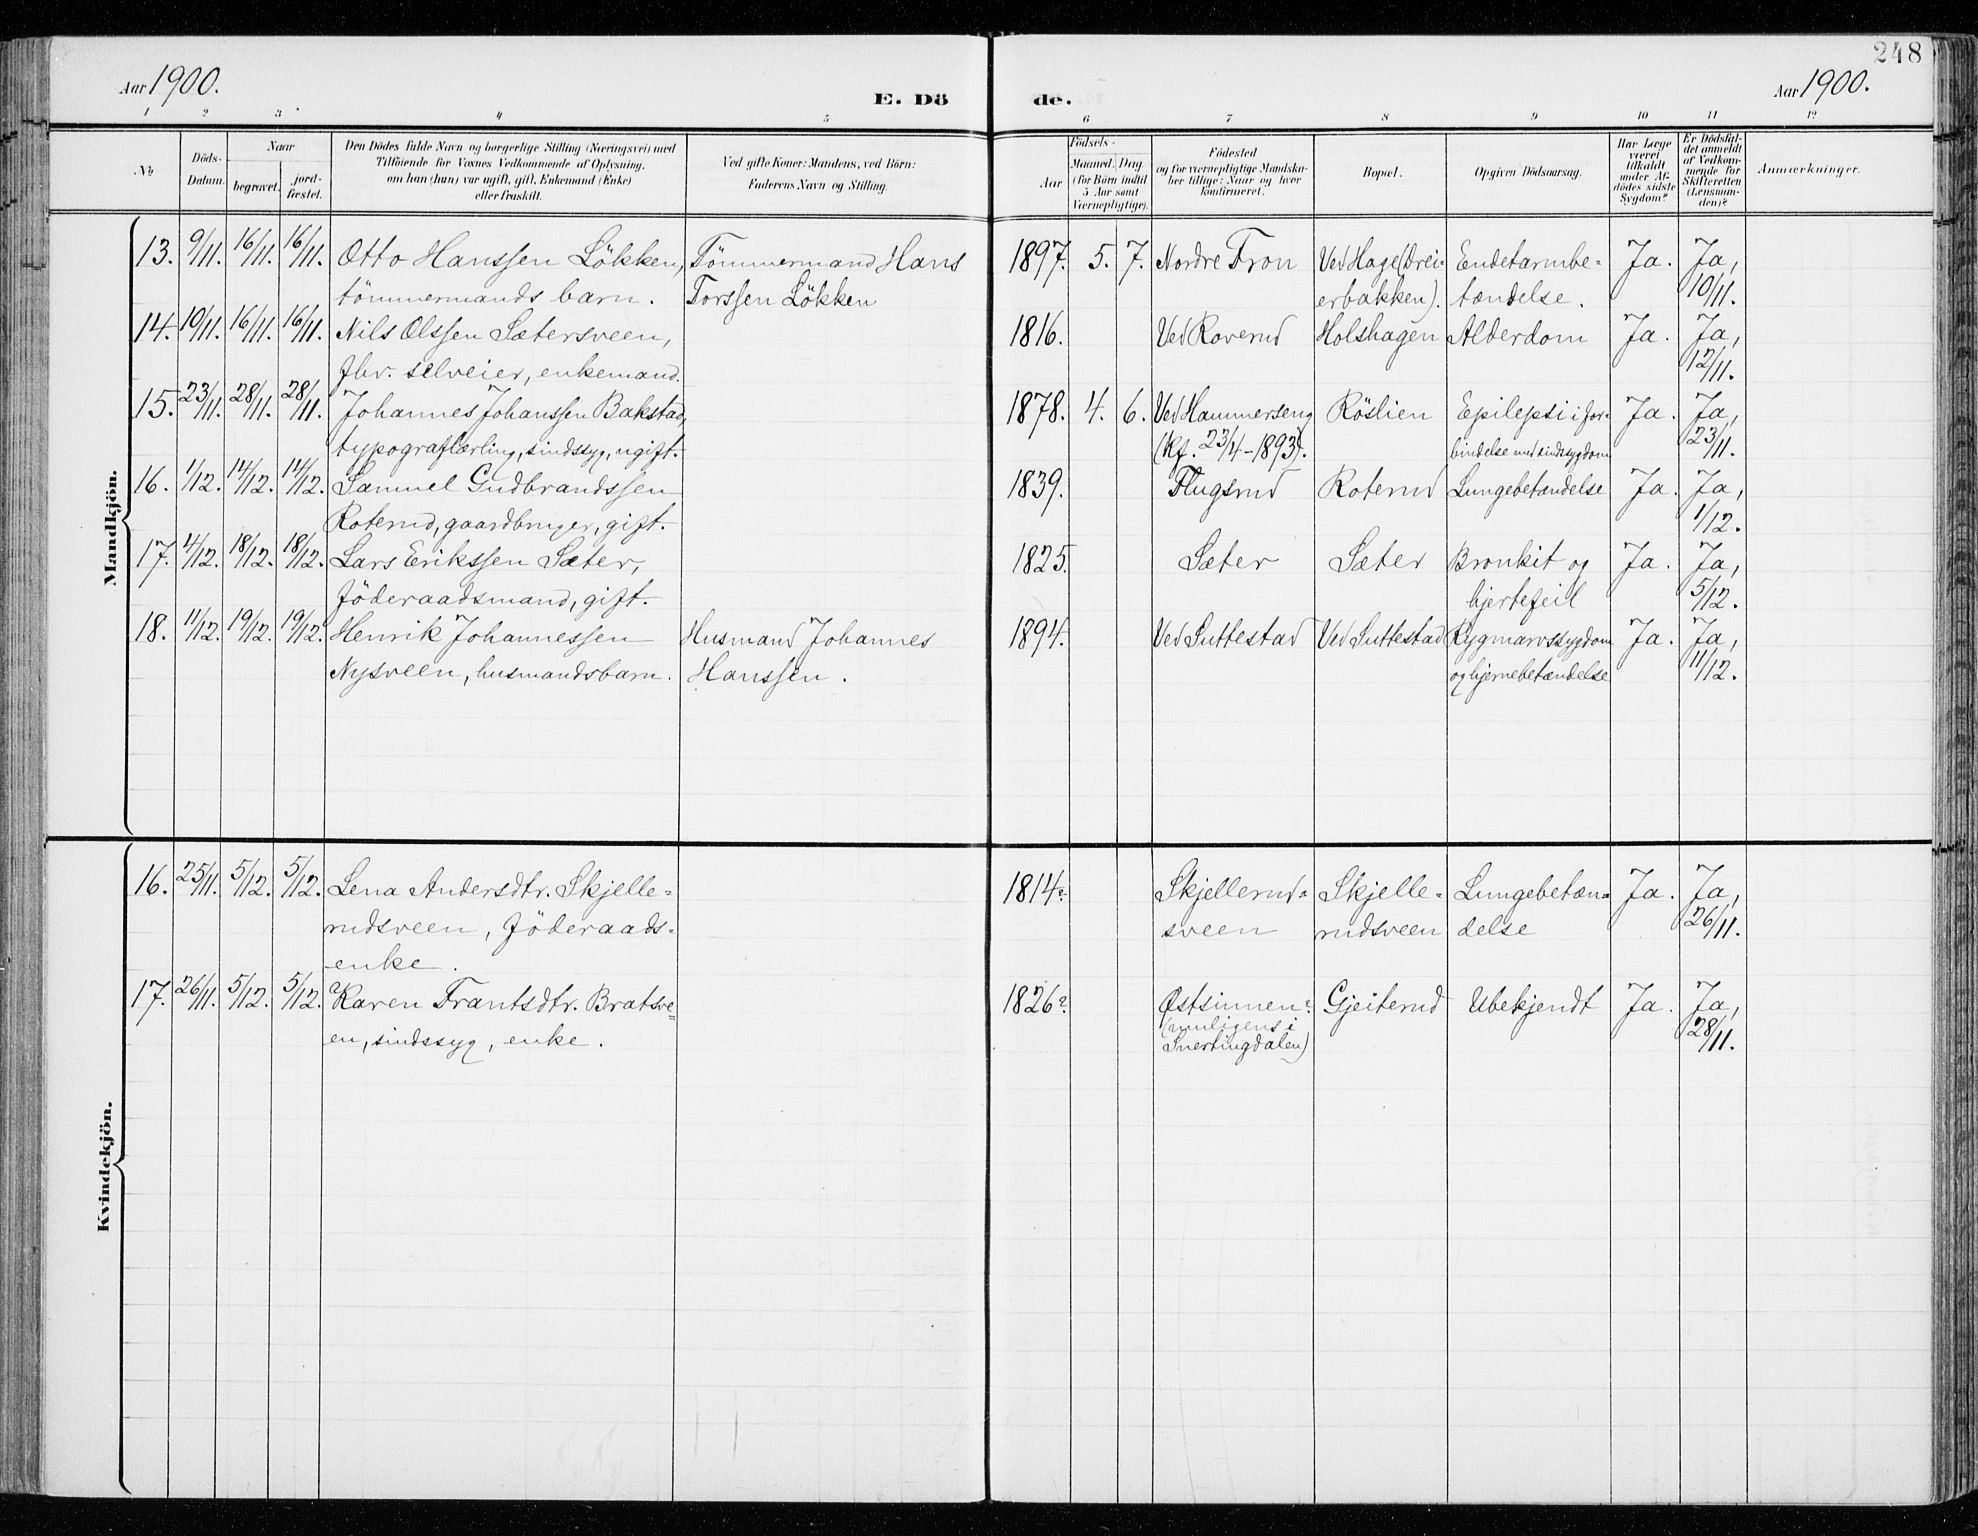 248
Aar 1900.
E. Dö
de.
Aar 1900.
1 2 3 4 5 6 7 8 9 10 11 12
№
Döds-
Datum.
Naar
begravet.
jord-
fæstet.
Den Dödes fulde Navn og borgerlige Stilling (Næringsvei) med
Tilföiende for Voxnes Vedkommende af Oplysning,
om han (hun) var ugift, gift, Enkemand (Enke)
eller fraskilt.
Ved gifte Koner: Mandens, ved Börn:
Faderens Navn og Stilling.
Födsels-
Aar
Maaned.
Dag.
(for Börn indtil
5 Aar samt
Værnepligtige).
Födested
og for værnepligtige Mandska-
ber tillige: Naar og hvor
konfirmeret.
Bopæl.
Opgiven Dödsaarsag.
Har Læge
været
tilkaldt
under Af-
dödes sidste
Sygdom?
Er Dödsfal-
det anmeldt
af Vedkom-
mende for
Skifteretten
(Lensman-
den)?
Anmærkninger.
Mandkjön.
13. 9/11. 16/11. 16/11. Otto Hanssen Lökken, Tömmermand Hans 1897. 5. 7. Nordre Fron Ved Hage (Drei- Endetarmbe- Ja. Ja,
tömmermands barn. Torssen Lökken erbakken). tændelse. 10/11.
14. 10/11. 16/11. 16/11. Nils Olssen Sætersveen, 1816. Ved Roverud Holshagen Alderdom Ja. Ja,
fhv. selveier, enkemand. 12/11.
15. 23/11. 28/11. 28/11. Johannes Johanssen Bakstad, 1878. 4. 6. Ved Hammerseng Röslien Epilepsi i for- Ja. Ja,
typograflærling, sindssyg, ugift. (kf. 23/4-1893). bindelse med sindssygdom 23/11.
16. 1/12. 14/12. 14/12. Samuel Gudbrandssen 1839. Flugsrud Roterud Lungebetændelse Ja. Ja,
Roterud, gaardbruger, gift. 1/12.
17. 4/12. 18/12. 18/12. Lars Erikssen Sæter, 1825. Sæter Sæter Bronkit og Ja. Ja,
föderaadsmand, gift. hjertefeil 5/12.
18. 11/12. 19/12. 19/12. Henrik Johannessen Husmand Johannes 1894. Ved Suttestad Ved Suttestad Rygmarvssygdom Ja. Ja,
Nysveen, husmandsbarn. Hanssen. og hjernebetændelse 11/12.
Kvindekjön.
16. 25/11. 5/12. 5/12. Lena Andersdtr. Skjelle- 1814? Skjellerud- Skjelle- Lungebetæn- Ja. Ja,
rudsveen, föderaads- sveen rudsveen delse 26/11.
enke.
17. 26/11. 5/12. 5/12. Karen Frantsdtr. Bratsve- 1826? Østsinnen? Gjeiterud Ubekjendt Ja. Ja,
en, sindssyg, enke. (muligens i 28/11.
Snertingdalen)